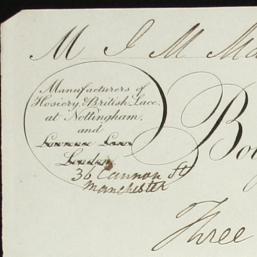 M J M Ma
Manufacturers of
Hosiery & British Lace,
at Nottingham,
and
London
36 Cannon St
Manchester
Bo
Three